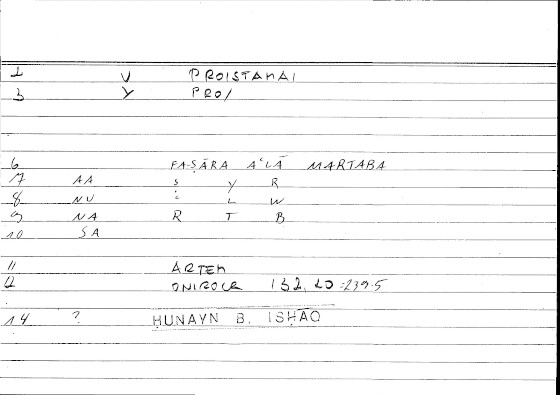 1 V PROISTAMAI
3 Y PRO/
6 FA-ṢĀRA AʿLĀ MARTABA
7 AA Ṣ Y R
8 NU ʿ L W
9 NA R T B
10 SA
11 ARTEM
12 ONIROCR 152, 20 = 239.5
14 ? ḤUNAYN B. ISḤĀQ